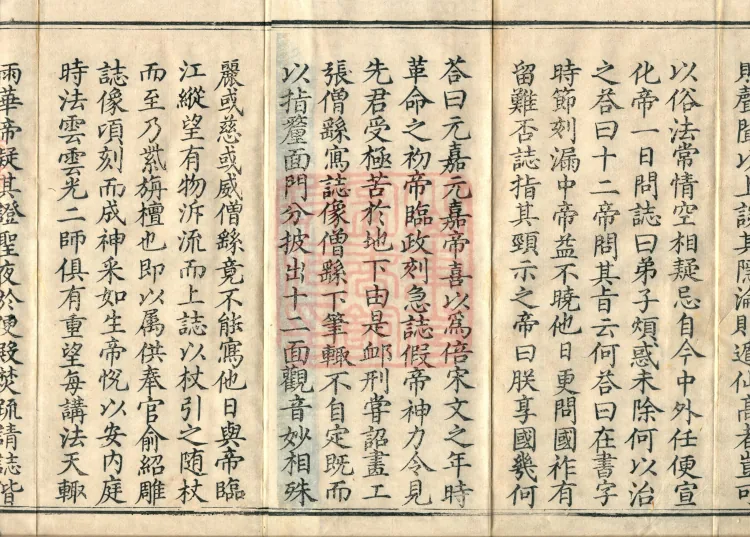 則聲聞以上談其隱淪則遁仙帝者豈可
以俗法常情空相疑忌自今中外任便宣
化帝一日問誌曰弟子煩惑未除何以治
之荅曰十二帝問其旨云何荅曰在書字
時節刻漏中帝益不曉他日更問國祚有
留難否誌指其頸示之帝曰朕享國幾何
荅曰元嘉元嘉帝喜以爲倍宋文之年時
革命之初帝臨政刻急誌假帝神力令見
先君受極苦於地下由是䘏刑甞詔畫工
張僧繇寫誌像僧繇下筆輙不自定既而
以指釐面門分披出十二面觀音妙相殊
麗或慈或威僧繇竟不能寫他日與帝臨
江縱望有物泝流而上誌以杖引之随杖
而至乃紫旃檀也即以属供奉官俞紹雕
誌像頃刻而成神采如生帝恱以安内庭
時法雲雲光二師俱有重望每講法天輙
雨華帝疑其證聖夜於便殿焚疏請誌皆